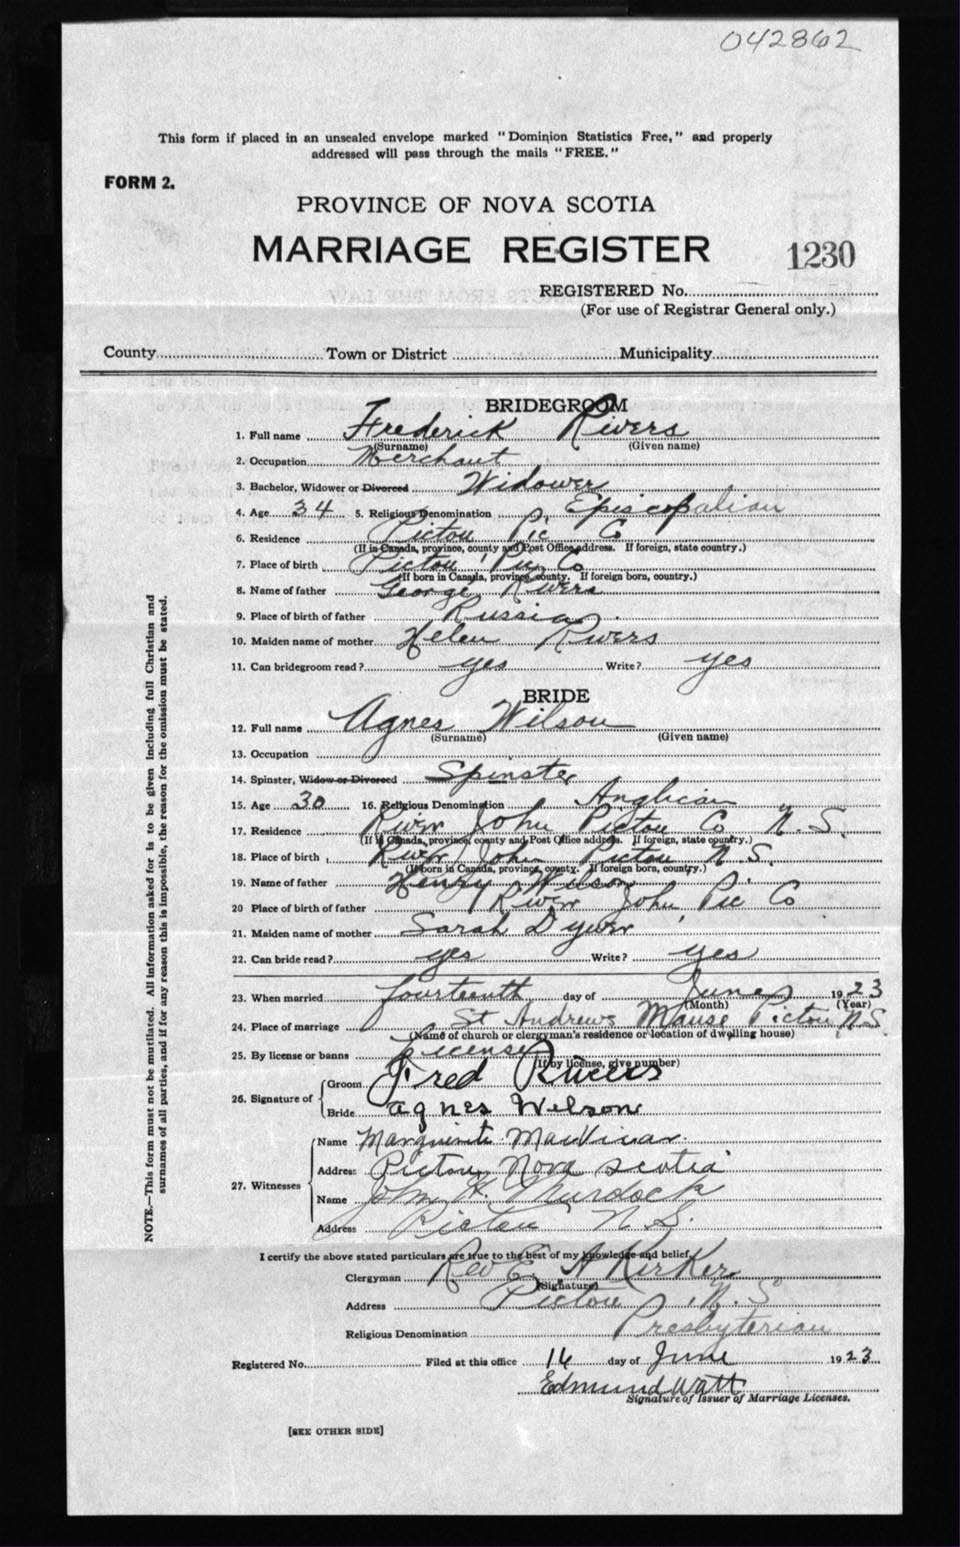 042862
This form if placed in an unsealed envelope marked "Dominion Statistics Free," and properly
addressed will pass through the mails "FREE."
FORM 2.
PROVINCE OF NOVA SCOTIA
MARRIAGE REGISTER 1230
REGISTERED No.
(For use of Registrar General only.)
County Town or District Municipality
BRIDEGROOM
1. Full name Frederick Rivers
(Surname) (Given name)
2. Occupation Merchant
3. Bachelor, Widower or Divorced Widower
4. Age 34 5. Religious Denomination Episcopalian
6. Residence Pictou Pic Co
(If in Canada, province, county and Post Office address. If foreign, state country.)
7. Place of birth Pictou Pic Co
(If born in Canada, province, county. If foreign born, country.)
8. Name of father George Rivers
9. Place of birth of father Russia
10. Maiden name of mother Helen Rivers
11. Can bridegroom read? yes Write? yes
BRIDE
12. Full name Agnes Wilson
(Surname) (Given name)
13. Occupation
14. Spinster, Widow or Divorced Spinster
15. Age 30 16. Religious Denomination Anglican
17. Residence River John Pictou Co N.S.
(If in Canada, province, county and Post Office address. If foreign, state country.)
18. Place of birth River John Pictou N.S.
(If born in Canada, province, county. If foreign born, country.)
19. Name of father Henry Wilson
20 Place of birth of father River John, Pic Co
21. Maiden name of mother Sarah Dywer
22. Can bride read? yes Write? yes
23. When married fourteenth day of June 1923
(Month) (Year)
24. Place of marriage St Andrews Manse Pictou N.S.
(Name of church or clergyman's residence or location of dwelling house)
25. By license or banns License
(If by license, give number)
26. Signature of Groom Fred Rivers
Bride agnes Wilson
27. Witnesses Name Marguerite MacVicar
Address Pictou, Nova Scotia
Name John H. Murdock
Address Pictou N.S.
I certify the above stated particulars are true to the best of my knowledge and belief,
Clergyman Rev E. A Kirker
(Signature)
Address Pictou N.S
Religious Denomination Presbyterian
Registered No. Filed at this office 14 day of June 1923
Edmund Watt
Signature of Issuer of Marriage Licenses.
[SEE OTHER SIDE]
NOTE.—This form must not be mutilated. All information asked for is to be given including full Christian and
surnames of all parties, and if for any reason this is impossible, the reason for the omission must be stated.